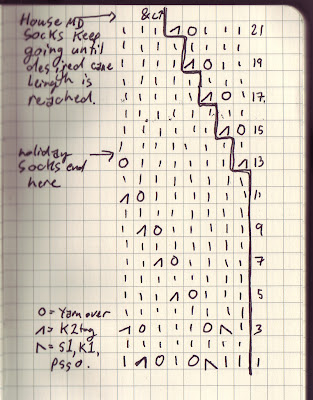 House MD
Socks keep
going until
desired cane
length is
reached.
&ct
21
19
17
15
holiday
socks end
here
13
11
9
7
5
3
1
O = Yarn over
= K2tog
= S1, K1,
psso.